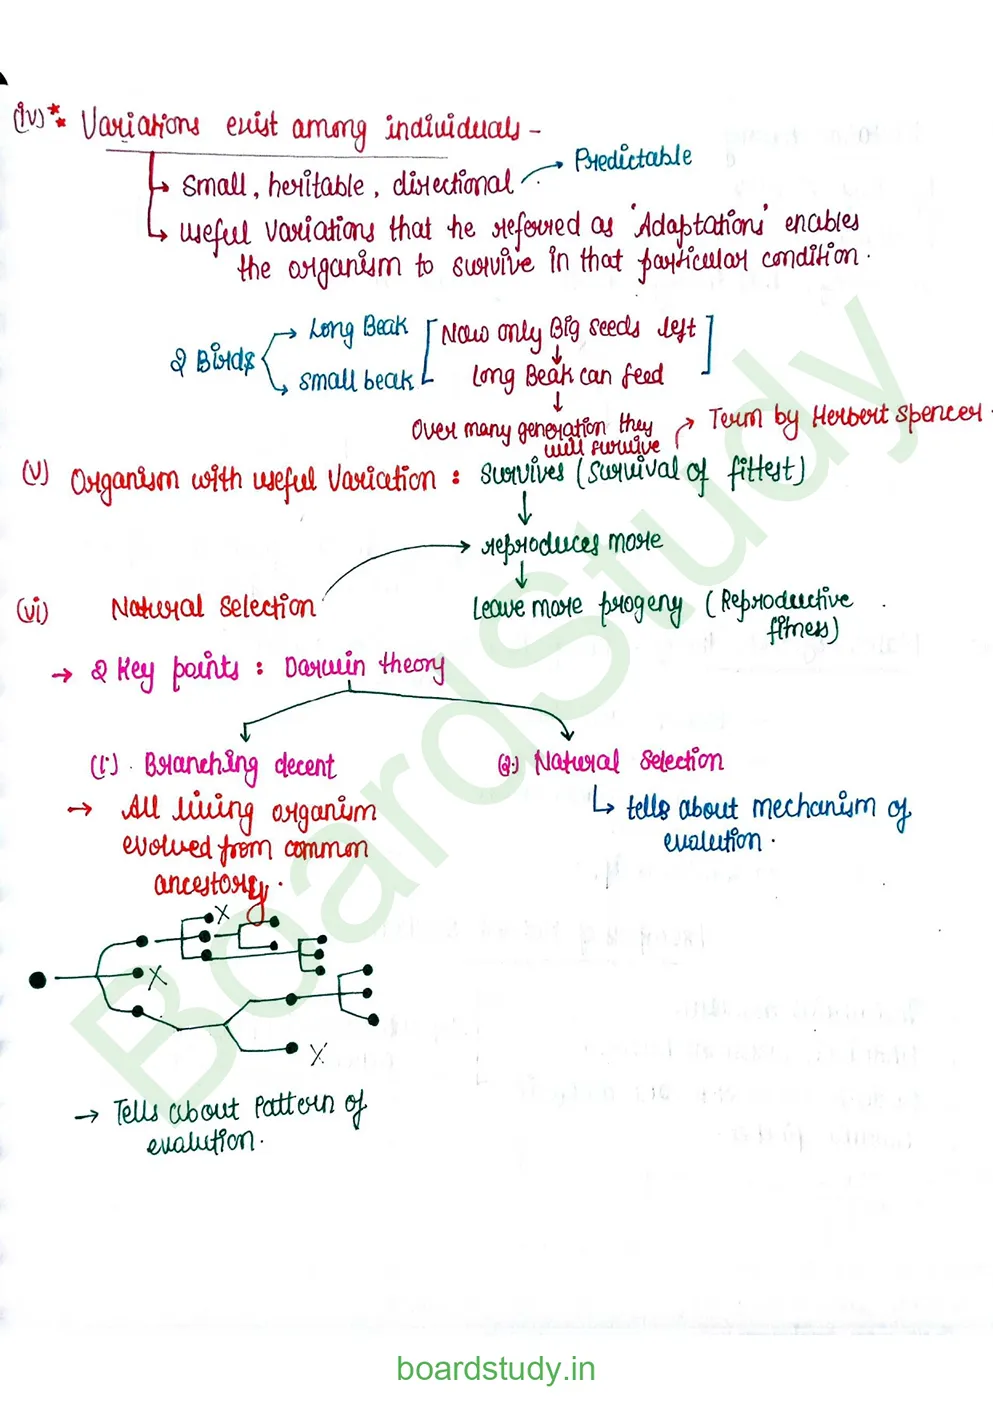 (iv)** Variations exist among individuals -
→ small, heritable, directional → Predictable
→ useful variations that he referred as 'Adaptations' enables
the organism to survive in that particular condition.
2 Birds → Long Beak [Now only Big seeds left]
→ small beak
↓
Long Beak can feed
↓
Over many generation they
will survive
→ Term by Herbert Spencer.
(v) Organism with useful variation : survives (survival of fittest)
↓
→ reproduces more
↓
(vi) Natural selection
Leave more progeny (Reproductive
fitness)
→ 2 Key points : Darwin theory
(1.) Branching decent
(2.) Natural selection
→ All living organism
evolved from common
ancestory.
↳ tells about mechanism of
evalution.
X
X
X
→ Tells about Pattern of
evalution.
BoardStudy
boardstudy.in